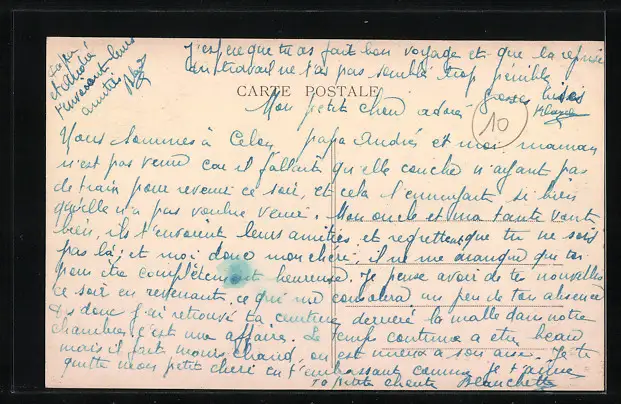 J'espère que tu as fait bon voyage et que la reprise
du travail ne t'as pas semblé trop pénible.
Grosses bises
papa
et André
t'envoient leurs
amitiés
CARTE POSTALE
10
Mon petit chou adoré
Nous sommes à Celon, papa André et moi, maman
n'est pas venue car il fallait qu'elle couche n'ayant pas
de train pour revenir ce soir, et cela l'ennuyait, si bien
qu'elle n'a pas voulue venir. Mon oncle et ma tante vont
bien, ils t'envoient leurs amitiés et regrettent que tu ne sois
pas là; et moi donc mon chéri, il ne me manque que toi
pour être complètement heureuse. Je pense avoir de tes nouvelles
ce soir en revenant, ce qui me consolera un peu de ton absence
Dis donc j'ai retrouvé ta ceinture derrière la malle dans notre
chambre, c'est une affaire. Le temps continue a etre beau
mais il fait moins chaud, on est mieux a son aise. Je te
quitte mon petit cheri en t'embrassant comme je t'aime
Ta petite chérie Blanchette